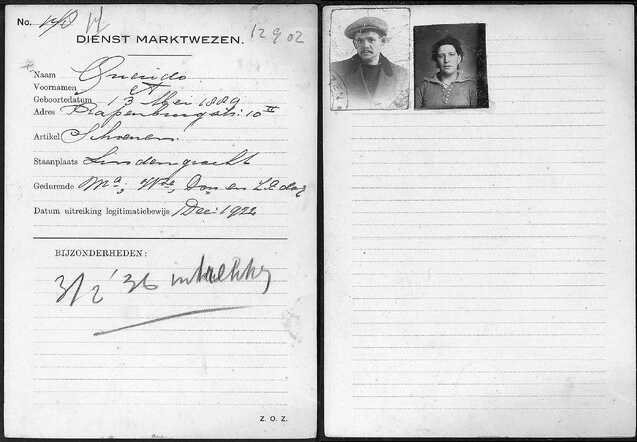 No.
12902
DIENST MARKTWEZEN.
Naam Querido
Voornamen A
Geboortedatum 13 Mei 1889
Adres Rapenburgstr. 10 II
Artikel Schoenen
Staanplaats Lindengracht
Gedurende Ma, Woe, Don en Za dag
Datum uitreiking legitimatiebewijs 1 Dec. 1922
BIJZONDERHEDEN:
3/2 '36 intrekking
Z. O. Z.